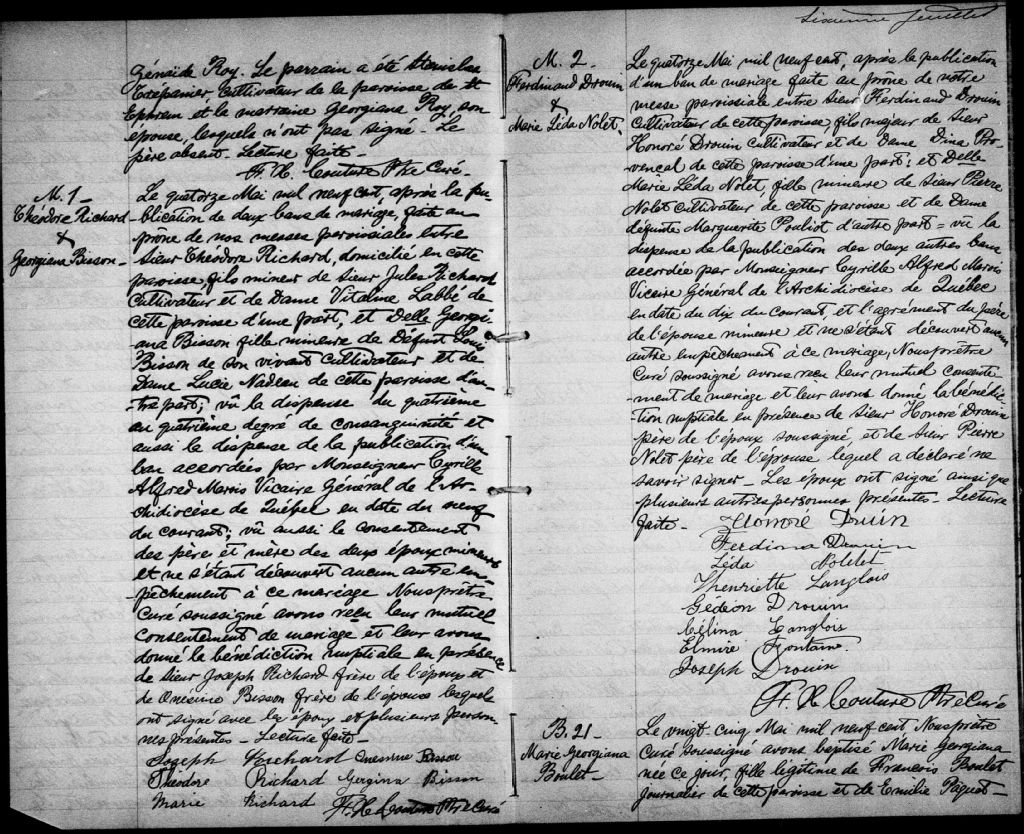 Zénaïde Roy. Le parrain a été Stanislas
Trépanier Cultivateur de la paroisse de St
Ephrem et la marraine Georgiana Roy, son
épouse, lesquels n'ont pas signé. Le
père absent. Lecture faite -
F. X. Couture Ptre Curé.
M. 1 -
Théodore Richard
&
Georgiana Bisson -
Le quatorze Mai mil neuf cent, après la pu-
-blication de deux bans de mariage, faite au
prône de nos messes paroissiales entre
Sieur Théodore Richard, domicilié en cette
paroisse, fils mineur de Sieur Jules Richard
Cultivateur et de Dame Vitaline Labbé de
cette paroisse d'une part, et Delle Georgi-
ana Bisson fille mineure de Défunt Louis
Bisson de son vivant cultivateur et de
Dame Lucie Nadeau de cette paroisse d'au-
-tre part; vû la dispense du quatrième
au quatrième degré de consanguinité et
aussi la dispense de la publication d'un
ban accordées par Monseigneur Cyrille
Alfred Marois Vicaire Général de l'Ar-
chidiocèse de Québec en date du neuf
du courant; vû aussi le consentement
des père et mère des deux époux mineurs
et ne s'étant découvert aucun autre em-
-pêchement à ce mariage Nous prêtre
Curé soussigné avons reçu leur mutuel
Consentement de mariage et leur avons
donné la bénédiction nuptiale en présence
de Sieur Joseph Richard frère de l'époux et
de Onésime Bisson frère de l'épouse lesquels
ont signé avec les époux et plusieurs person
nes présentes - Lecture faite -
Joseph Richard Onesime Bisson
Théodore Richard Gergina Bisson
Marie Richard F. X. Couture Ptre Curé
Sixième feuillet
M. 2 -
Ferdinand Drouin
&
Marie Léda Nolet.
Le quatorze Mai mil neuf cent, après la publication
d'un ban de mariage faite au prône de notre
messe paroissiale entre Sieur Ferdinand Drouin
Cultivateur de cette paroisse, fils majeur de Sieur
Honoré Drouin cultivateur et de Dame Dina Pro-
vencal de cette paroisse d'une part; et Delle
Marie Léda Nolet, fille mineure de Sieur Pierre
Nolet cultivateur de cette paroisse et de Dame
défunte Marguerite Pouliot d'autre part = vû la
dispense de la publication des deux autres bans
accordée par Monseigneur Cyrille Alfred Marois
Vicaire Général de l'Archidiocèse de Québec
en date du dix du courant, et l'agrément du père
de l'épouse mineure et ne s'étant découvert aucun
autre empêchement à ce mariage, Nous prêtre
Curé soussigné avons reçu leur mutuel consente-
-ment de mariage et leur avons donné la bénédic
-tion nuptiale en présence de Sieur Honoré Drouin
père de l'époux soussigné, et de Sieur Pierre
Nolet père de l'épouse lequel a déclaré ne
savoir signer - Les époux ont signé ainsi que
plusieurs autres personnes présentes - Lecture
faite -
Honoré Drouin
Ferdina Drouin
Léda Nolet
Henriette Langlois
Gédéon Drouin
Célina Langlois
Elmire Fontaine
Joseph Drouin
F. X Couture Ptre Curé
B. 21 -
Marie Georgiana
Boulet -
Le vingt-cinq Mai mil neuf cent Nous prêtre
Curé soussigné avons baptisé Marie Georgiana
née ce jour, fille légitime de Francois Boulet
journalier de cette paroisse et de Emilie Paquet -